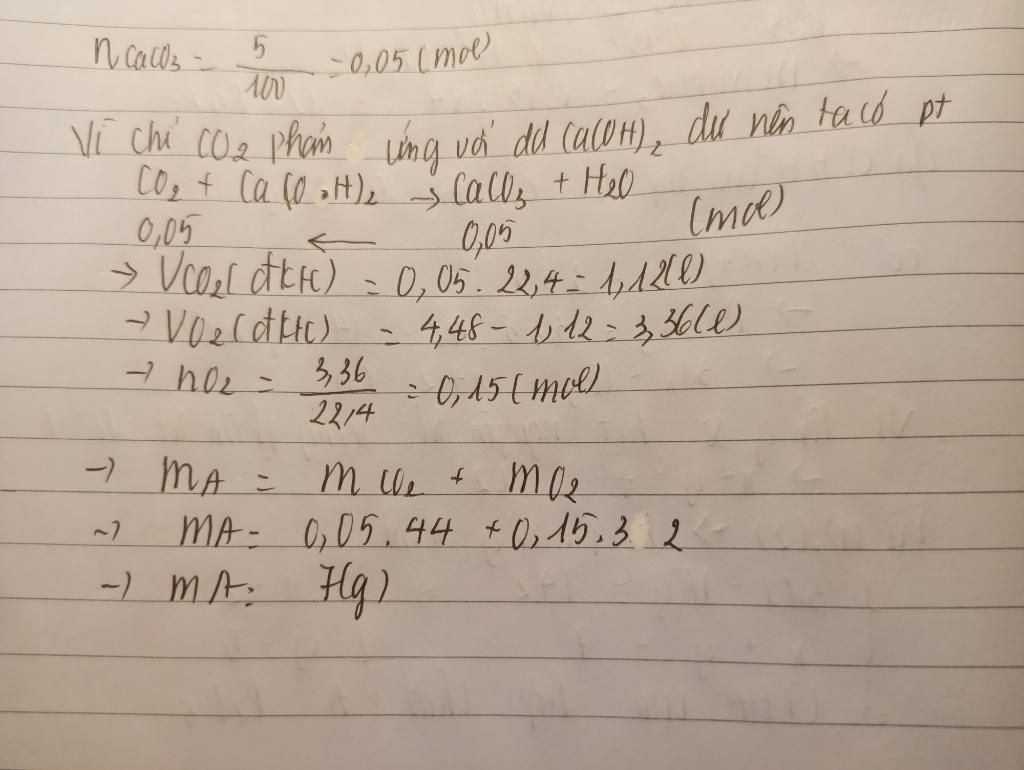 nCaCO3 = 5/100 = 0,05 (mol)
Vì chỉ CO2 phản ứng với dd Ca(OH)2 dư nên ta có pt
CO2 + Ca(OH)2 → CaCO3 + H2O
0,05 ← 0,05 (mol)
→ VCO2(đktc) = 0,05. 22,4 = 1,12(l)
→ VO2(đktc) = 4,48 - 1,12 = 3,36(l)
→ nO2 = 3,36/22,4 = 0,15 (mol)
→ mA = mCO2 + mO2
→ mA = 0,05. 44 + 0,15. 3 2
→ mA = 7(g)